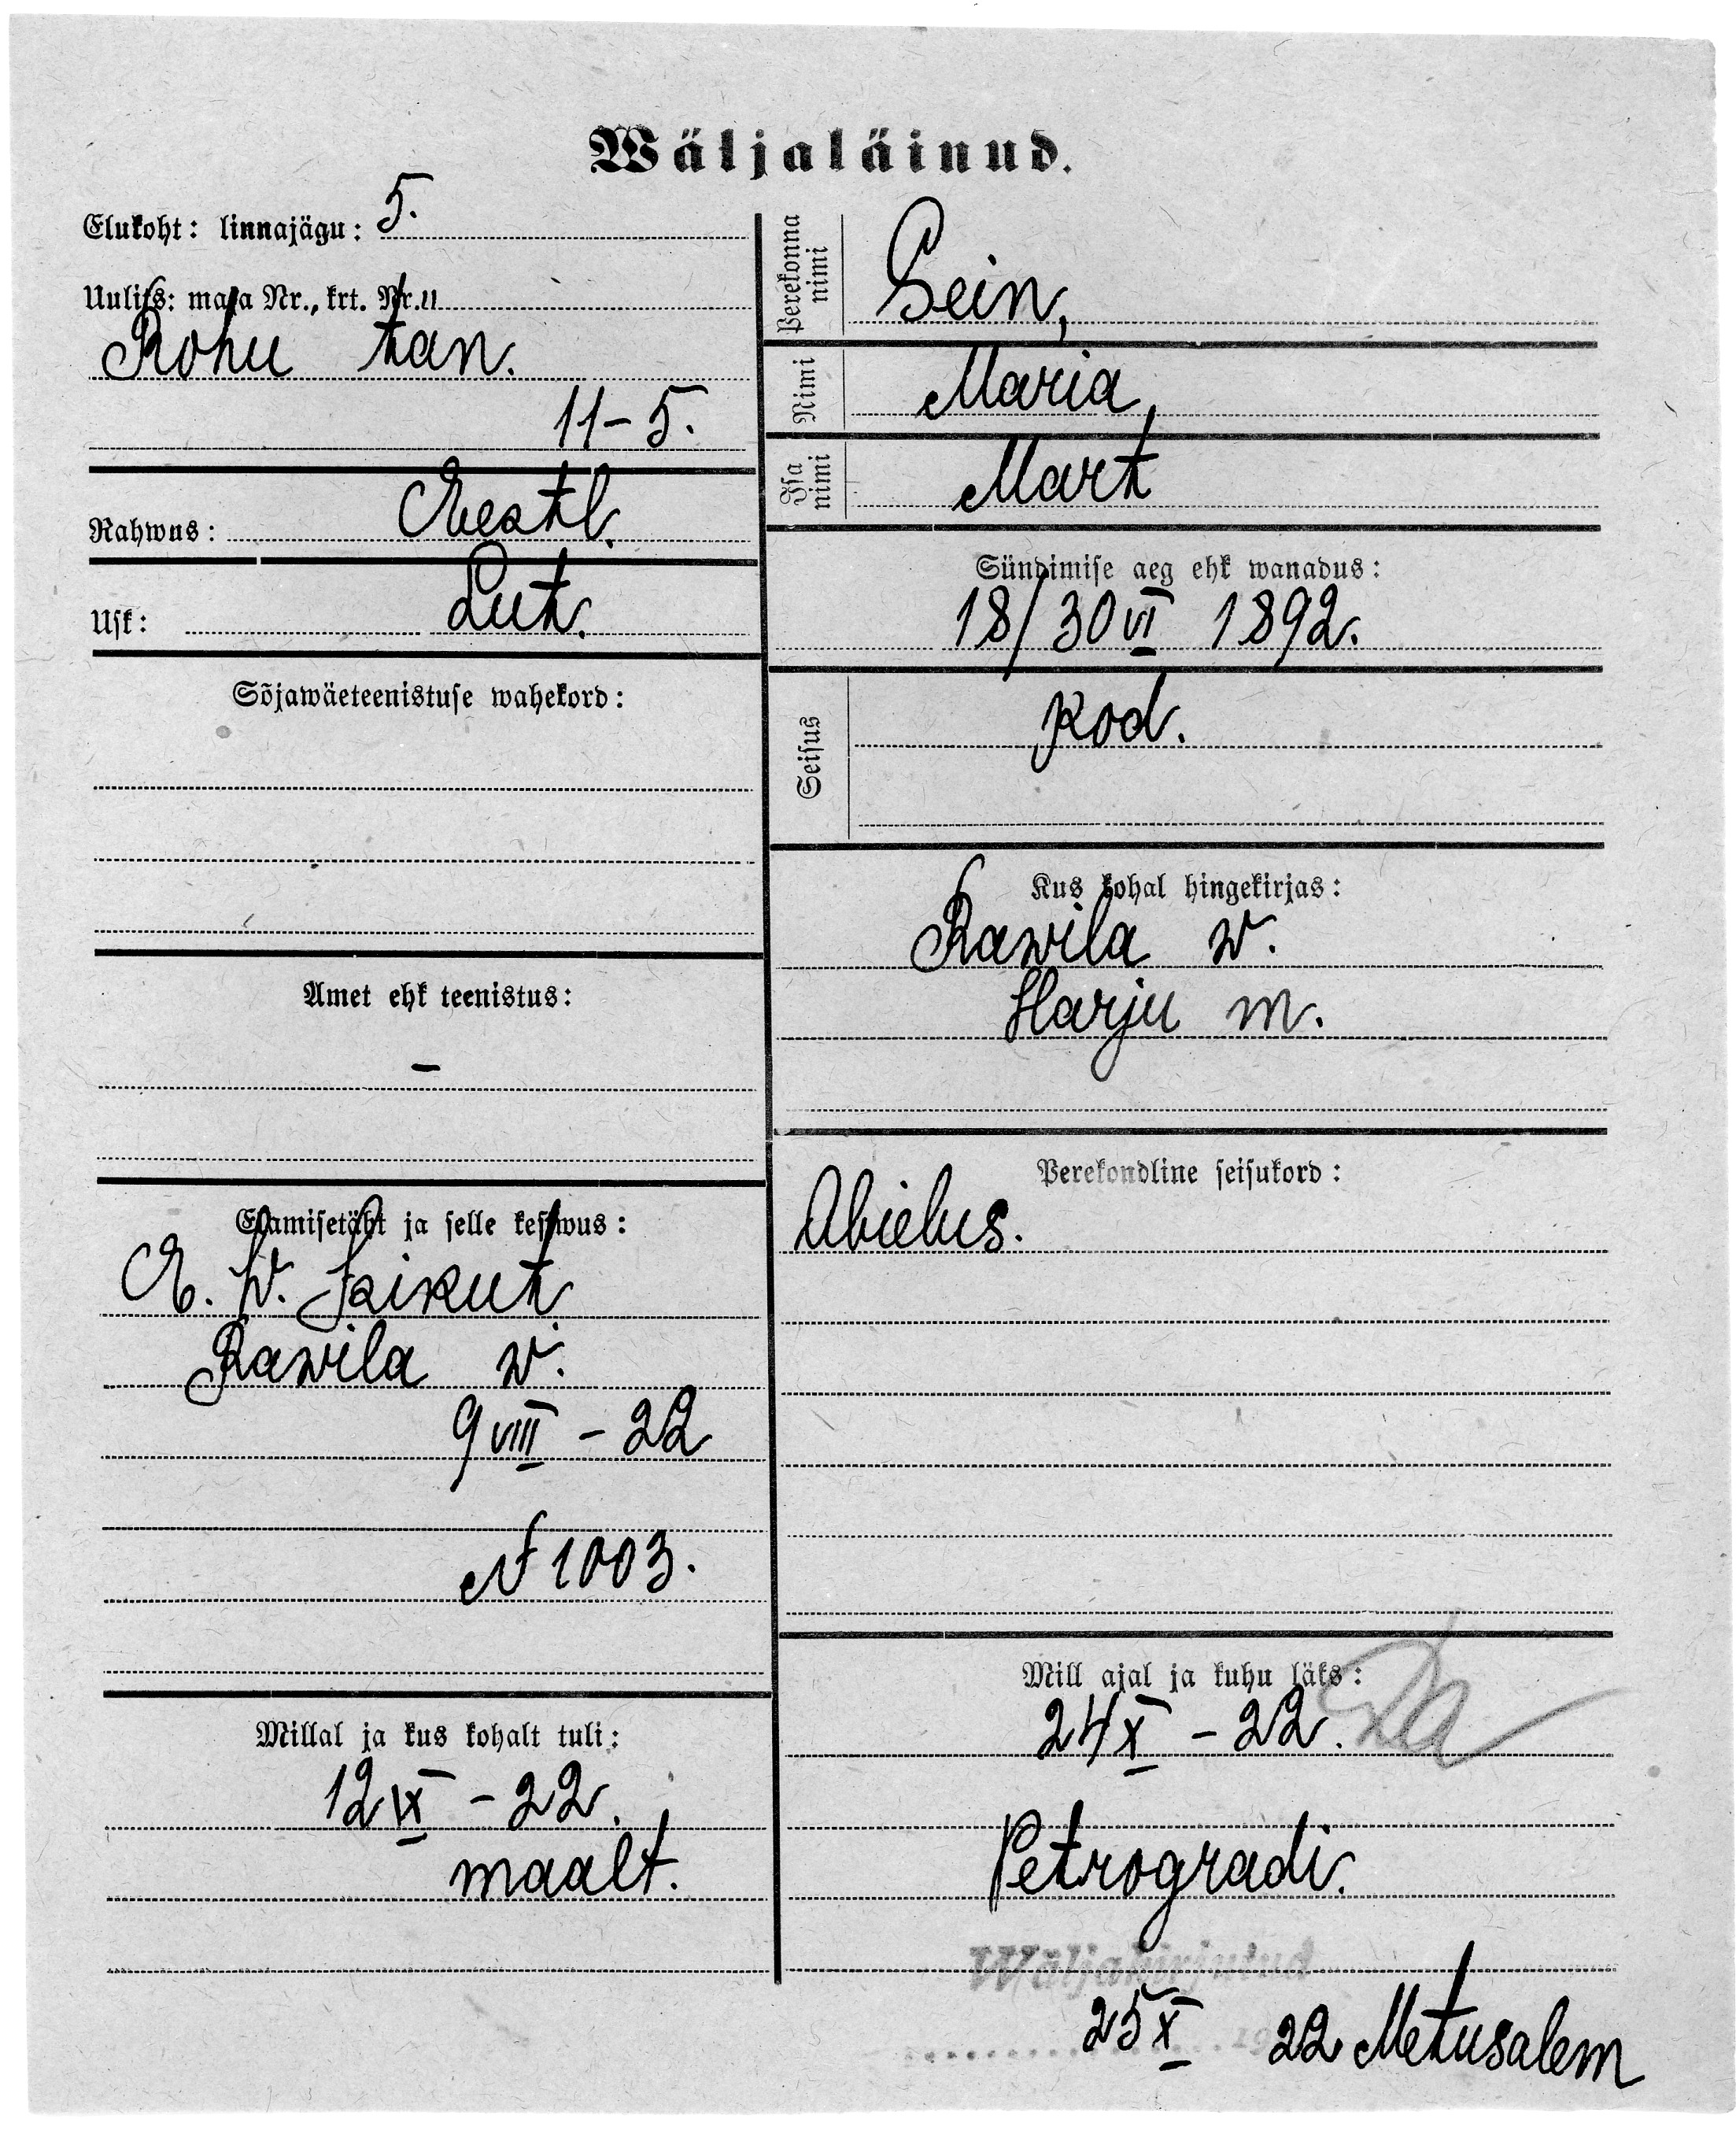 Wäljaläinud.
Elukoht: linnajägu: 5.
Uulits: maja Nr., krt. Nr.
Rohu tän.
11-5.
Rahwus: Eestl.
Usk: Lut.
Sõjawäeteenistuse wahekord:
Amet ehk teenistus:
–
Elamisetäht ja selle kestwus:
E. W. Isikut.
Rawila w.
9 VIII - 22
№ 1003.
Millal ja kus kohalt tuli:
12 IX - 22.
maalt.
Perekonna nimi
Sein,
Nimi
Maria,
Isa nimi
Mart
Sündimise aeg ehk wanadus:
18/30 VI 1892.
Seisus
kod.
Kus kohal hingekirjas:
Rawila w.
Harju m.
Perekondline seisukord:
Abielus.
Mill ajal ja kuhu läks:
24 X - 22.
Petrogradi.
Wäljakirjutud
25 X 1922 Metusalem